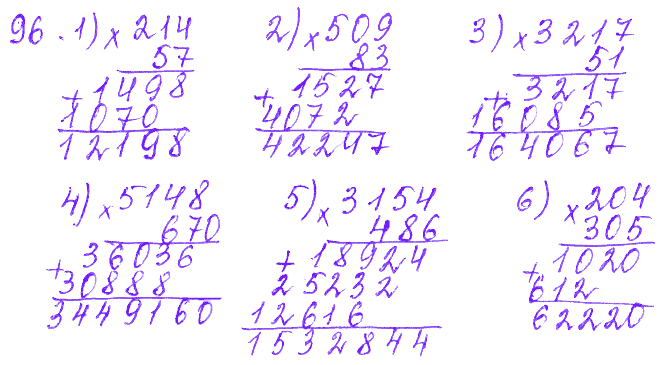 96. 1) × 214 2) × 509 3) × 3217
57 83 51
+ 1498 + 1527 + 3217
1070 4072 16085
12198 42247 164067
4) × 5148 5) × 3154 6) × 204
670 486 305
+ 36036 + 18924 + 1020
30888 25232 612
3449160 12616 62220
1532844